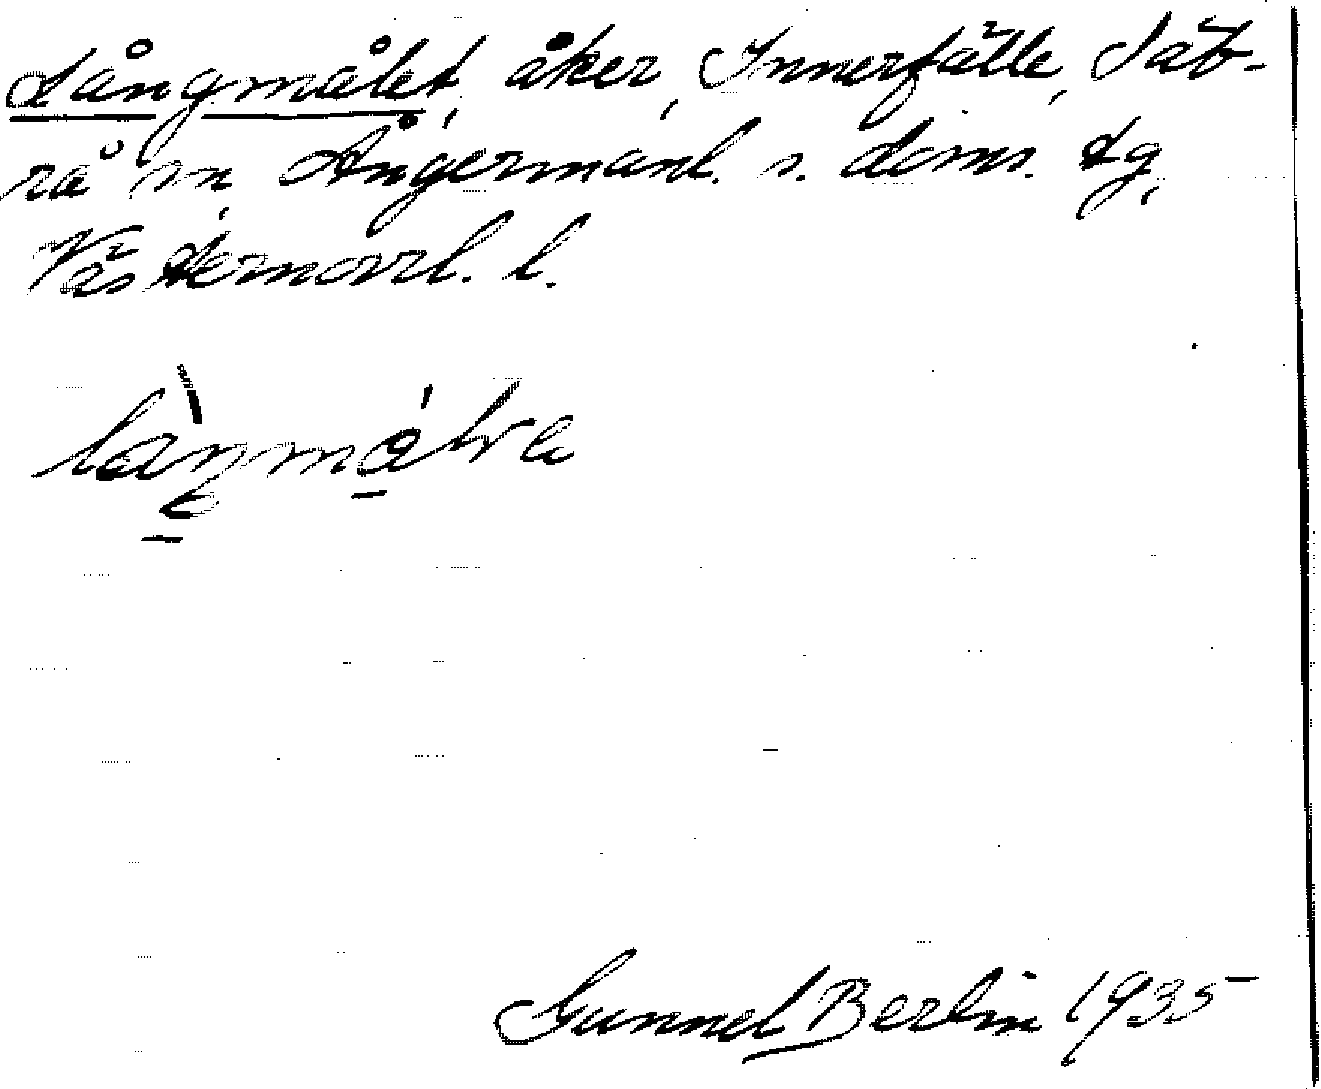 Långmålet, åker, Innerfälle, Säb-
rå sn, Ångermanl. s. doms. tg,
Västernorrl. l.
Gunnel Berlin 1935